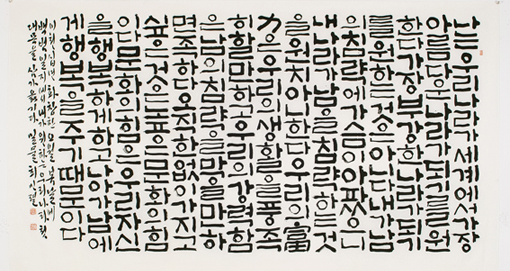 나는우리나라가세계에서가장
아름다운나라가되기를원
한다가장부강한나라가되기
를원하는것은아니다내가남
의침략에가슴이아팠으니
내나라가남을침략하는것
을원치아니한다우리의富
力은우리의생활을풍족
히할만하고우리의강력함
은남의침략을막을만하
면족하다오직한없이가지고
싶은것은높은문화의힘
이다문화의힘은우리자신
을행복하게하고나아가남에
게행복을주기때문이다
화창한
백범일지에 내가 원하는 우리나라
대목을 삼가 옮기다